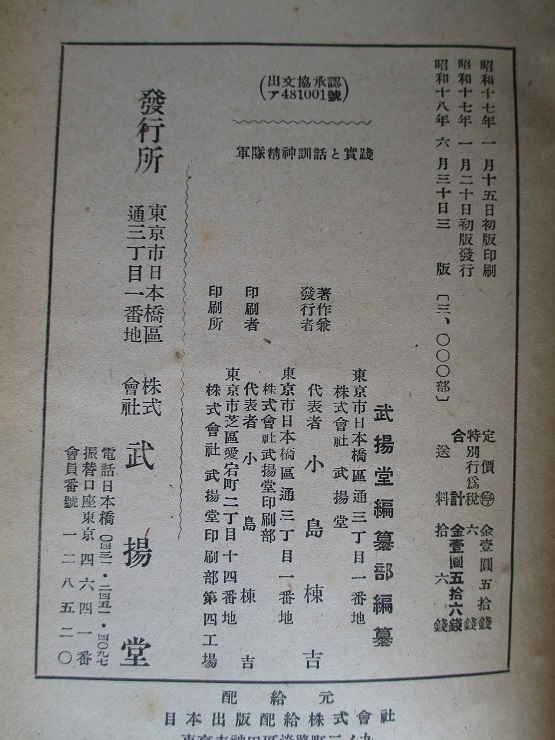 昭和十七年 一月十五日初版印刷
昭和十七年 一月二十日初版發行
昭和十八年 六月三十日三版 〔三、〇〇〇部〕
定價 ㊞ 金壹圓五拾錢
特別行爲稅 六錢
合計 金壹圓五拾六錢
送料 拾六錢
(出文協承認
ア481001號)
軍隊精神訓話と實踐
武揚堂編纂部編纂
東京市日本橋區通三丁目一番地
株式會社 武揚堂
著作兼
發行者
代表者 小島棟吉
東京市日本橋區通三丁目一番地
株式會社武揚堂印刷部
印刷者
代表者 小島棟吉
東京市芝區愛宕町二丁目十四番地
印刷所
株式會社 武揚堂印刷部第四工場
發行所
東京市日本橋區
通三丁目一番地
株式
會社 武揚堂
電話日本橋 〇四三一・二四五一・四〇九七
振替口座東京四六四一番
會員番號 一二八五二〇
配給元
日本出版配給株式會社
東京市神田區淡路町二ノ九